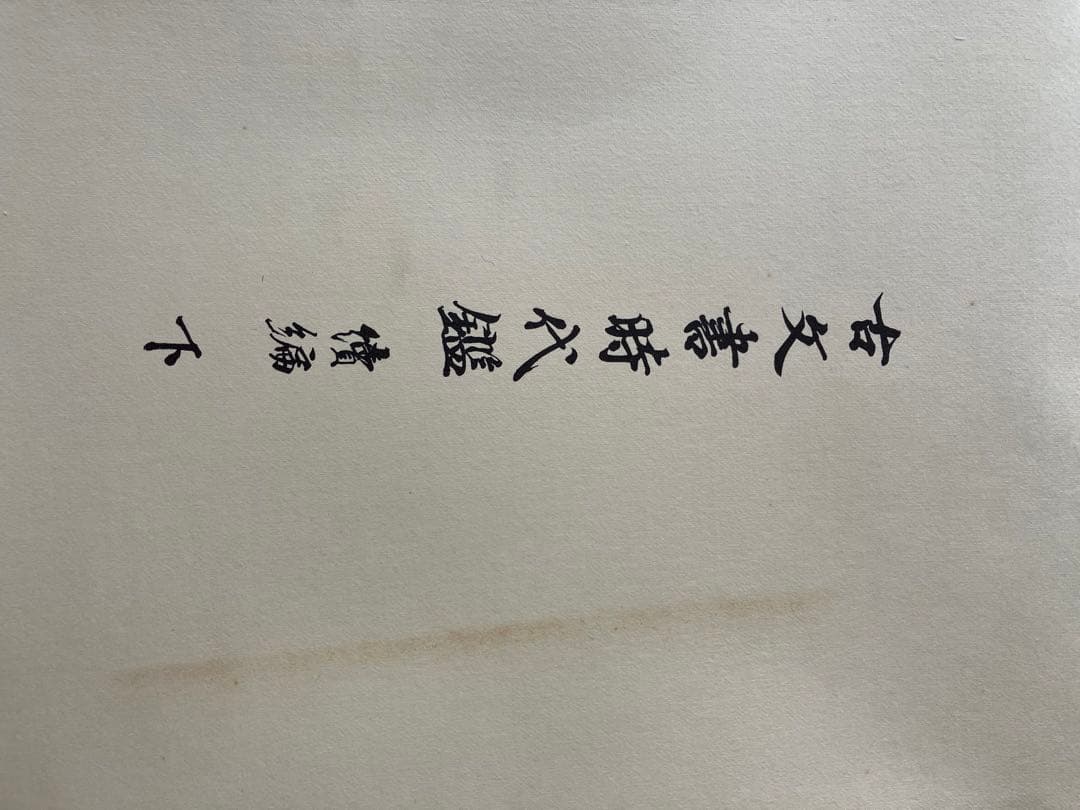 古文書時代鑑 續編 下